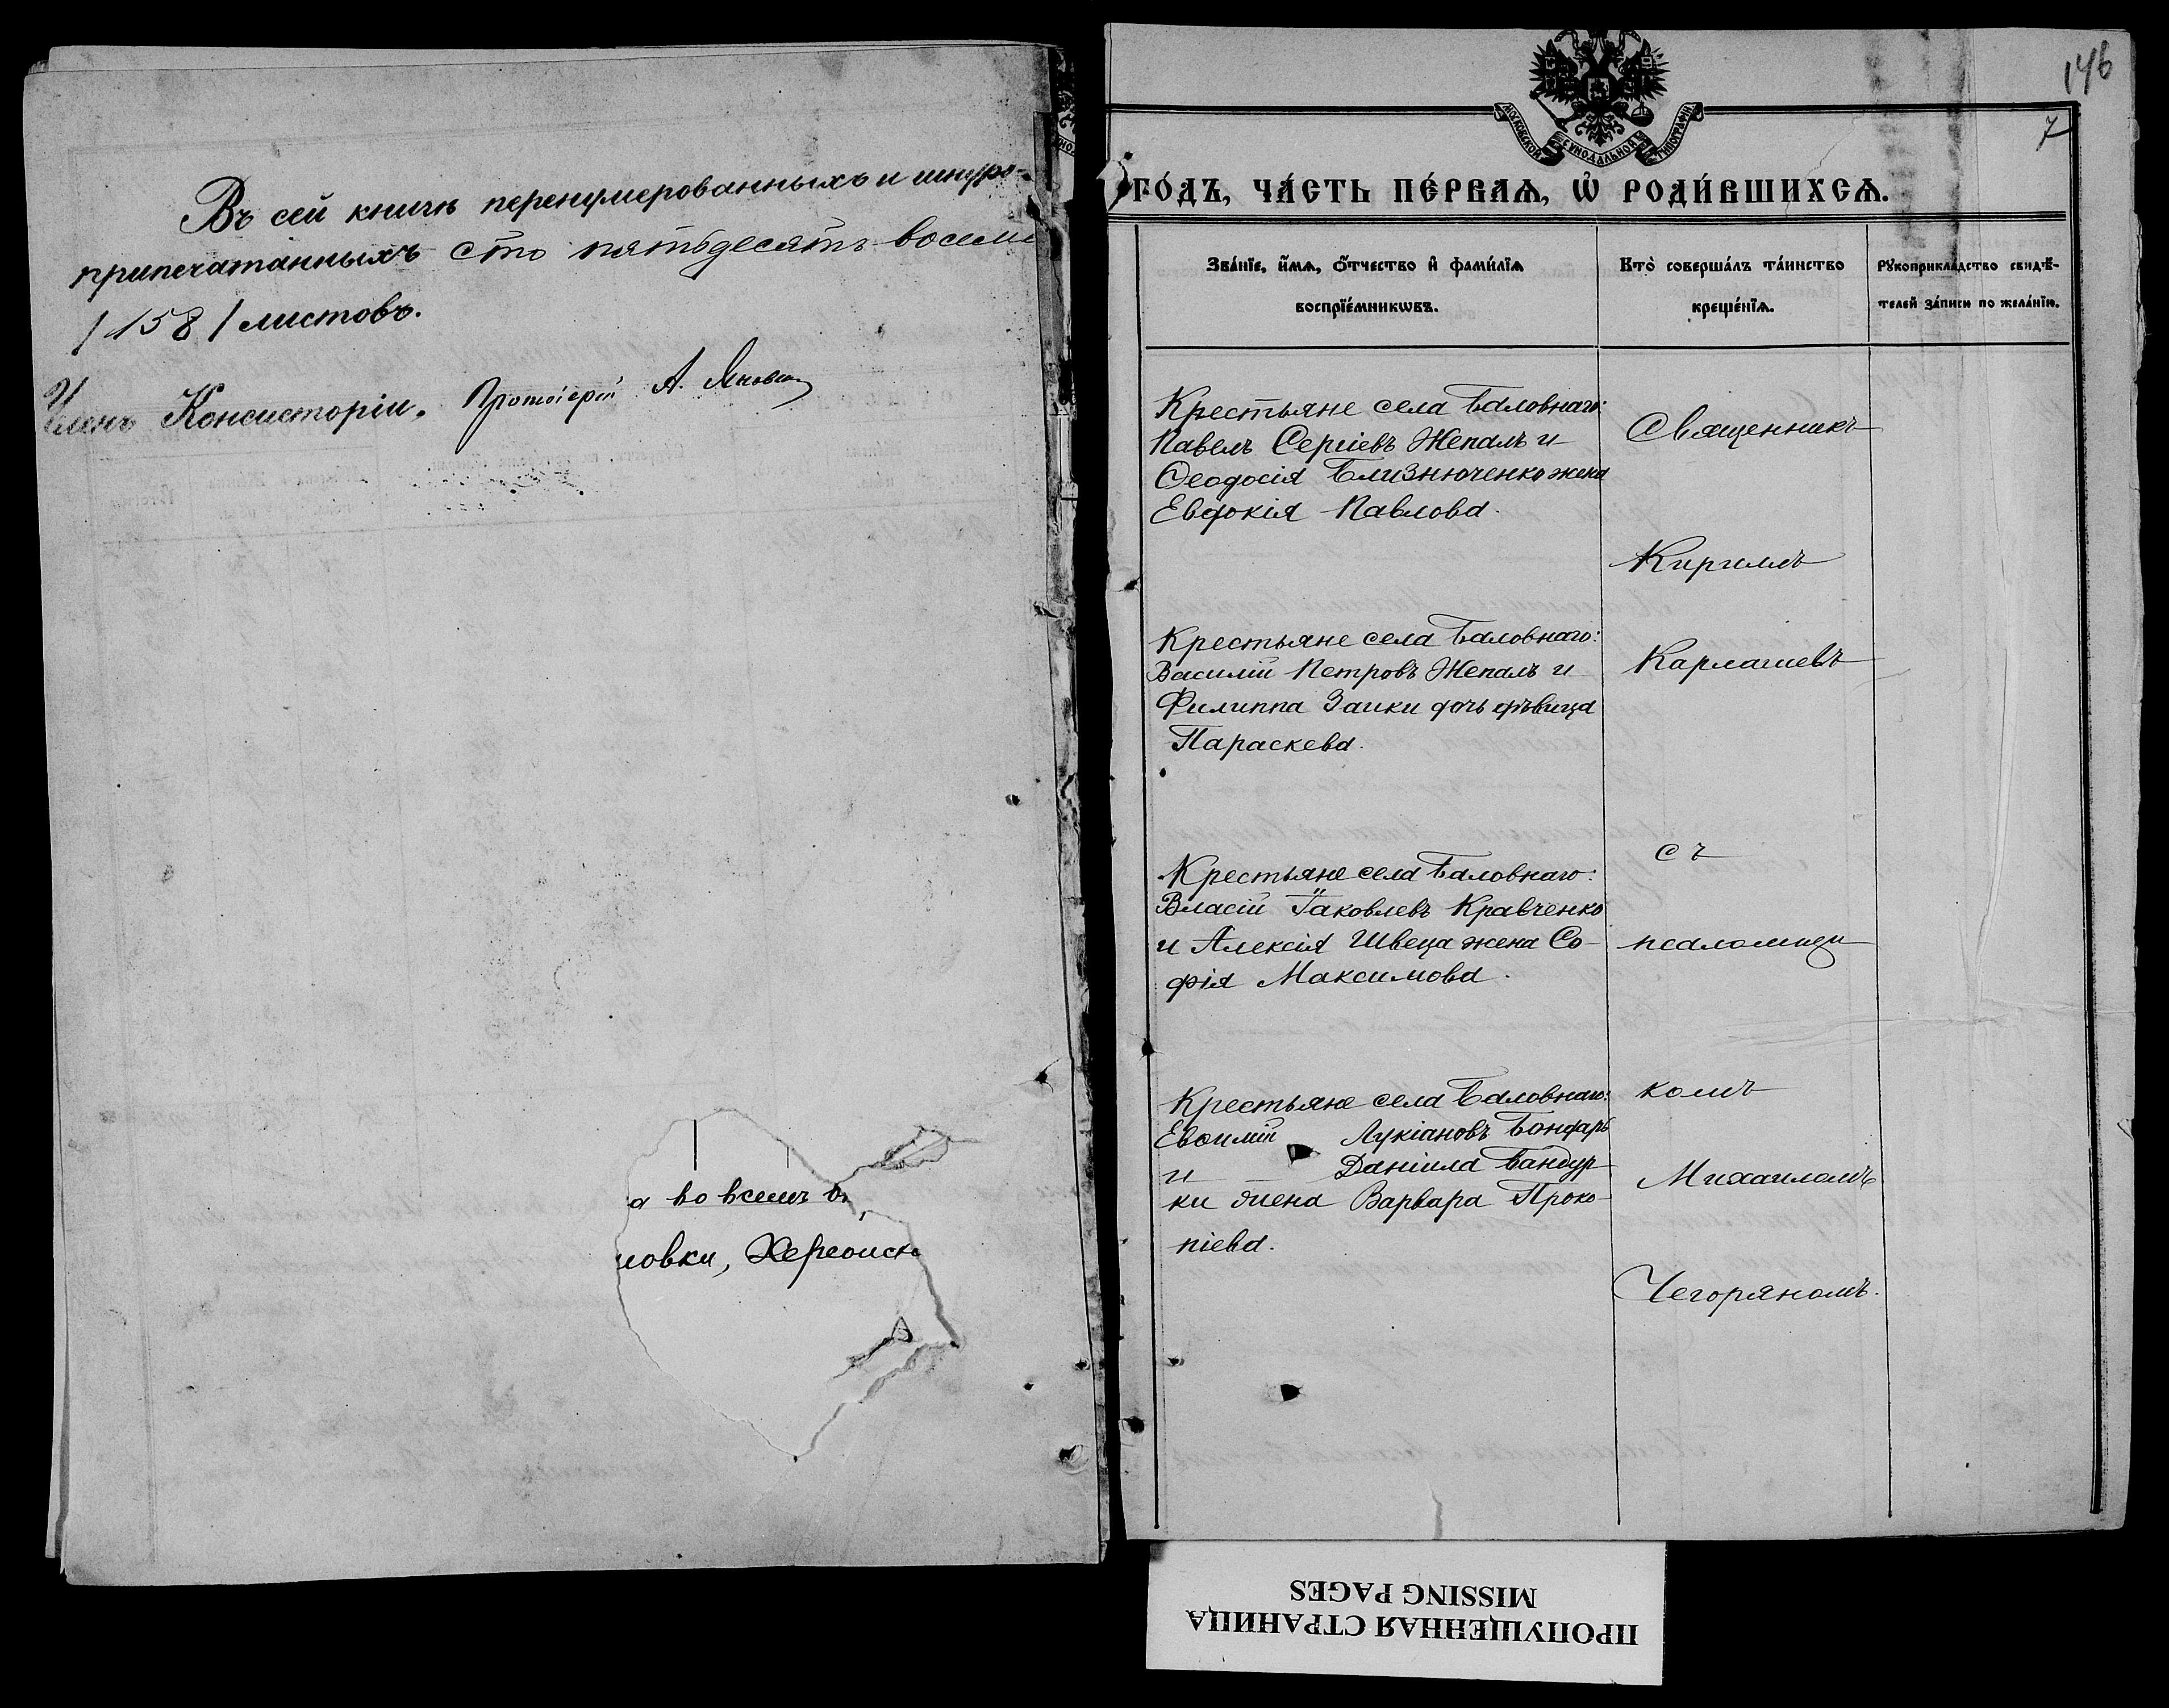 Въ сей книгѣ перенумерованныхъ и шнуро-
припечатанныхъ сто пятьдесятъ восемь
/158/ листовъ.
Членъ Консисторіи, Протоіерей А.
а во всемъ
ловки, Херсонск
146
МОСКОВСКОЙ СѴНОДАЛЬНОЙ ТИПОГРАФІИ
7
ГО́ДЪ, ЧА́СТЬ ПЕ́РВАѦ, Ѽ РОДИ́ВШИХСѦ.
Зва́нїе, и҆́мѧ, ѻ҆́тчество и҆ фами́лїѧ
воспрїе́мникѡвъ.
Кто̀ соверша́лъ та́инство
креще́нїѧ.
Рꙋкоприкла́дство свидѣ́-
телей за́писи по жела́нїю.
Крестьяне села Баловнаго:
Павелъ Сергіевъ Жепалъ и
Ѳеодосія Близнюченко жена
Евдокія Павлова.
Священникъ
Кириллъ
Крестьяне села Баловнаго:
Василій Петровъ Жепалъ и
Филиппа Заики дочь дѣвица
Параскева.
Карлашевъ
Крестьяне села Баловнаго:
Власій Іаковлевъ Кравченко
и Алексія Швеца жена Со-
фія Максимова.
съ
псаломщи
Крестьяне села Баловнаго:
Евѳимій Лукіановъ Бондарь
и Даніила Бандур-
ки жена Варвара Проко-
піева.
комъ
Михаиломъ
Чегоряномъ.
ПРОПУЩЕННАЯ СТРАНИЦА
MISSING PAGES